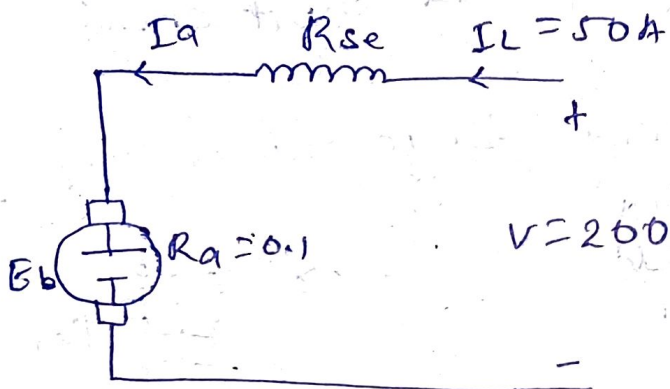 Ia Rse IL = 50A
+
Eb Ra = 0.1 V = 200
-